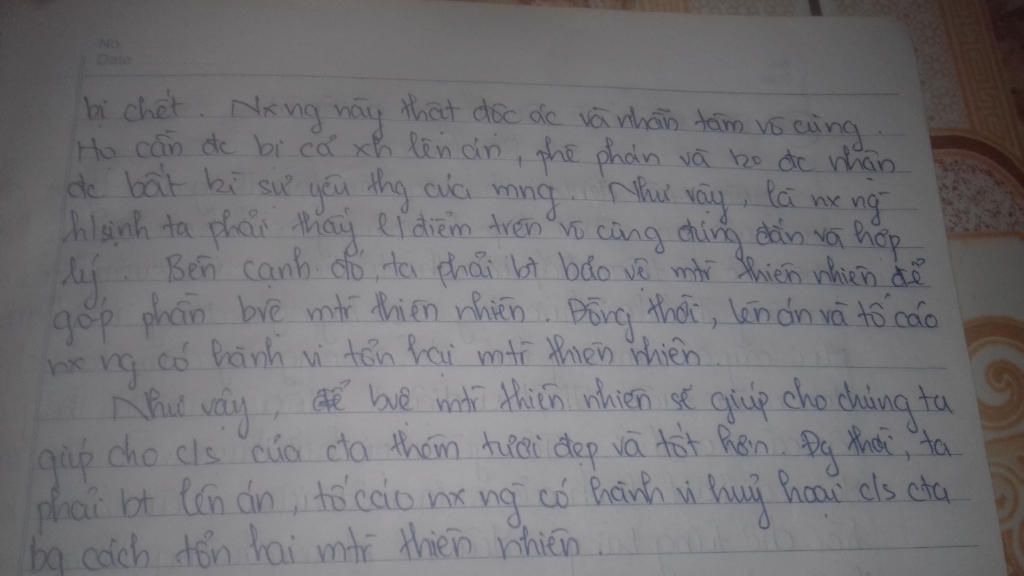 No.
Date
bị chết. Nx ng này thật độc ác và nhẫn tâm vô cùng.
Họ cần đc bị cả xh lên án, phê phán và ko đc nhận
đc bất kì sự yêu thg của mng. Như vậy, là nx ng
h/sinh ta phải thấy l/điểm trên vô cùng đúng đắn và hợp
lý. Bên cạnh đó, ta phải bt bảo vệ mtr thiên nhiên để
góp phần bvệ mtr thiên nhiên. Đồng thời, lên án và tố cáo
nx ng có hành vi tổn hại mtr thiên nhiên.
Như vậy, để bvệ mtr thiên nhiên sẽ giúp cho chúng ta
giúp cho c/s của cta thêm tươi đẹp và tốt hơn. Đg thời, ta
phải bt lên án, tố cáo nx ng có hành vi huỷ hoại c/s cta
bg cách tổn hại mtr thiên nhiên.